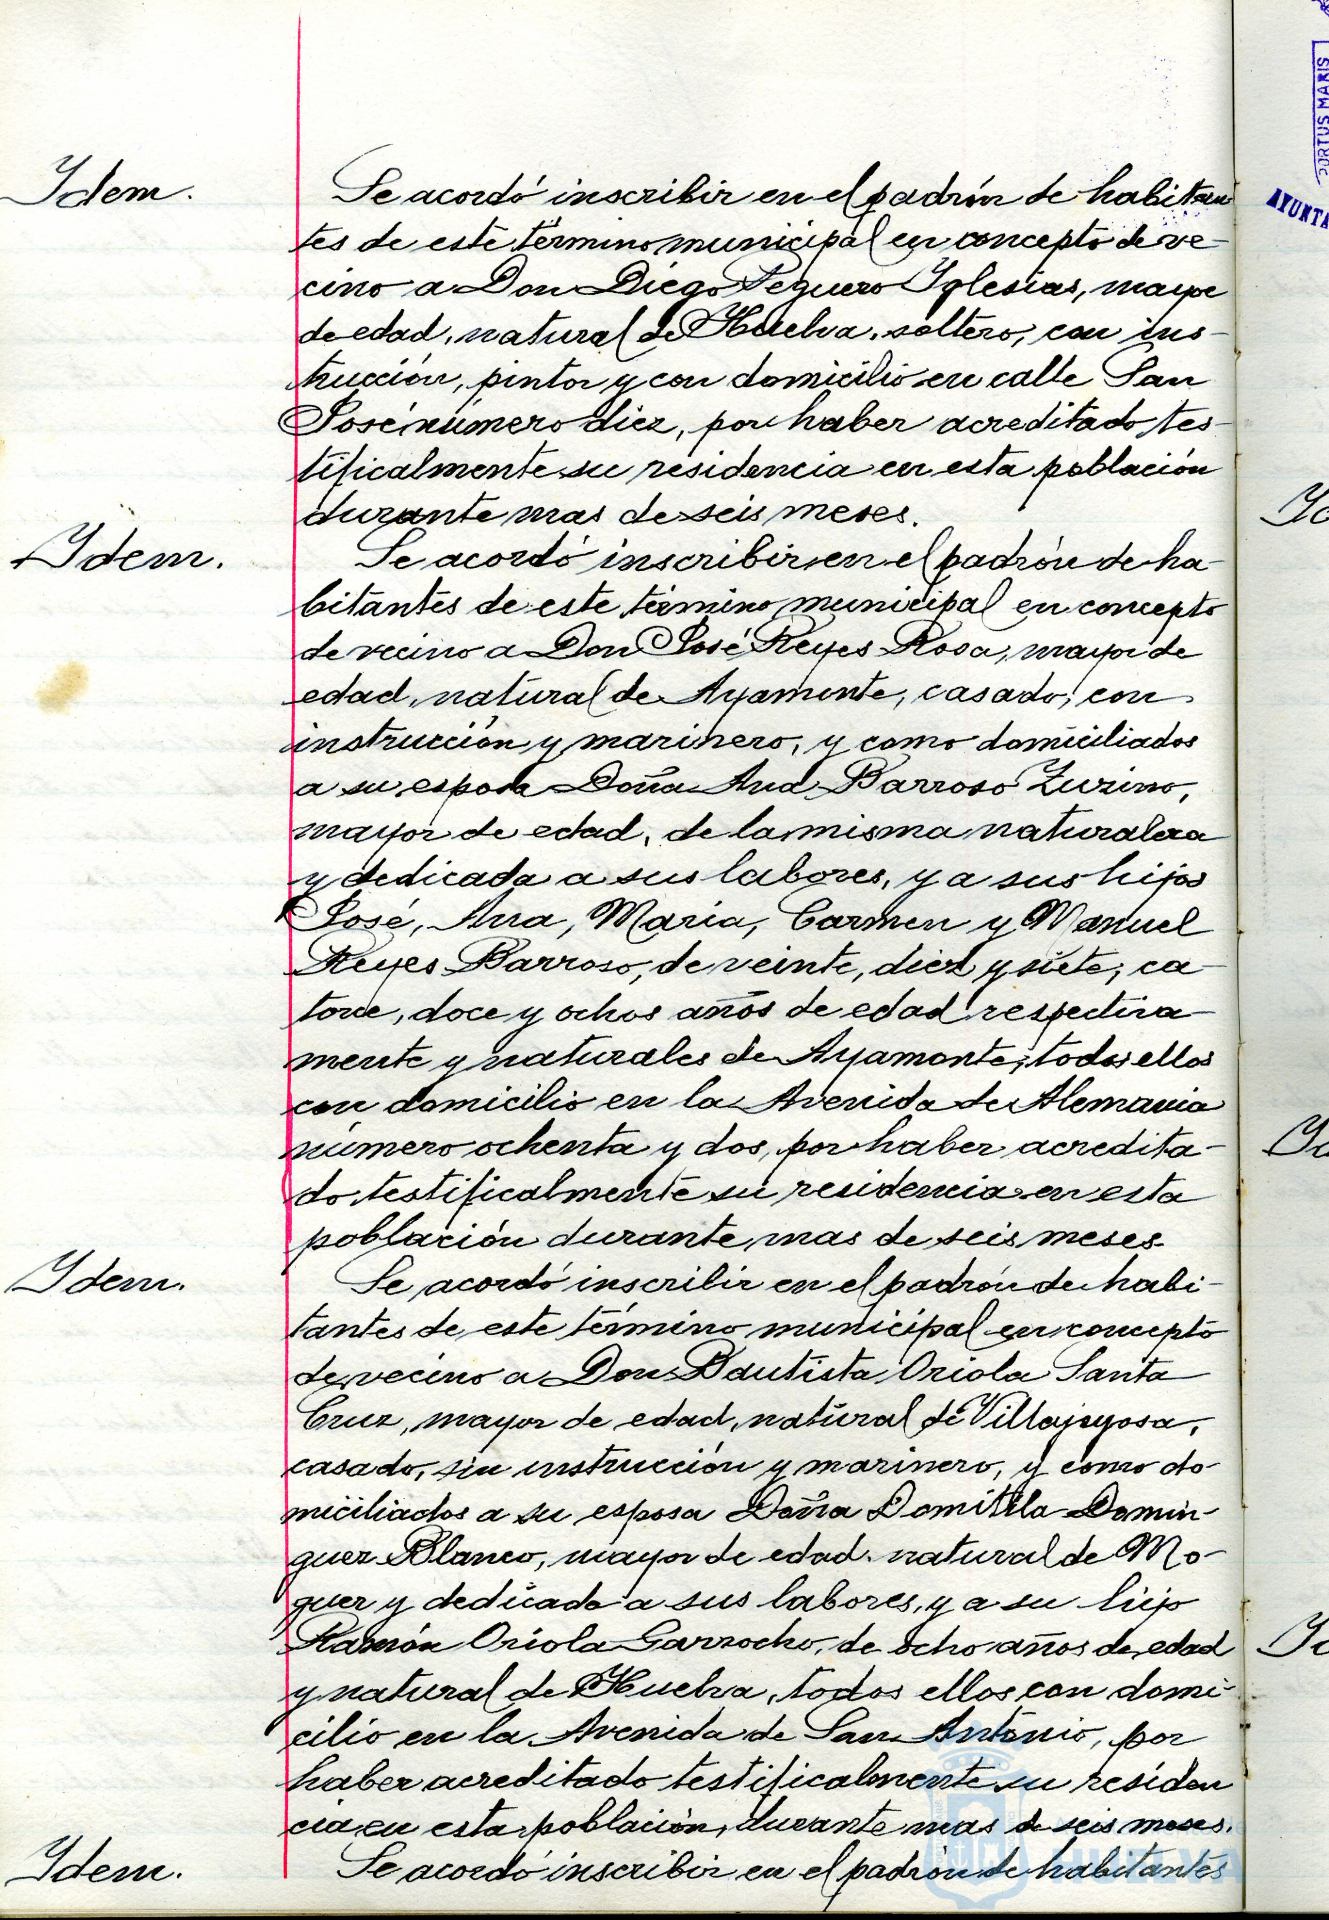 Ydem. Se acordó inscribir en el padrón de habitan-
tes de este término municipal en concepto de ve-
cino a Don Diego Peguero Yglesias, mayor
de edad, natural de Huelva, soltero, con ins-
trucción, pintor y con domicilio en calle San
José número diez, por haber acreditado tes-
tificalmente su residencia en esta población
durante mas de seis meses.
Ydem. Se acordó inscribir en el padrón de ha-
bitantes de este término municipal en concepto
de vecino a Don José Reyes Rosa, mayor de
edad, natural de Ayamonte, casado, con
instrucción y marinero, y como domiciliados
a su esposa Doña Ana Barroso,
mayor de edad, de la misma naturaleza
y dedicada a sus labores, y a sus hijos
José, Ana, María, Carmen y Manuel
Reyes Barroso, de veinte, diez y siete, ca-
torce, doce y ochos años de edad respectiva-
mente y naturales de Ayamonte, todos ellos
con domicilio en la Avenida de Alemania
número ochenta y dos, por haber acredita-
do testificalmente su residencia en esta
población durante mas de seis meses.
Ydem. Se acordó inscribir en el padrón de habi-
tantes de este término municipal en concepto
de vecino a Don Bautista Oriola Santa
Cruz, mayor de edad, natural de Villajoyosa,
casado, sin instrucción y marinero, y como do-
miciliados a su esposa Doña Domitila Domín-
guez Blanco, mayor de edad, natural de Mo-
guer y dedicada a sus labores, y a su hijo
Ramón Oriola Garrocho, de ocho años de edad
y natural de Huelva, todos ellos con domi-
cilio en la Avenida de San Antonio, por
haber acreditado testificalmente su residen
cia en esta población, durante mas de seis meses.
Ydem. Se acordó inscribir en el padrón de habitantes
PORTUS MARIS
AYUNTA